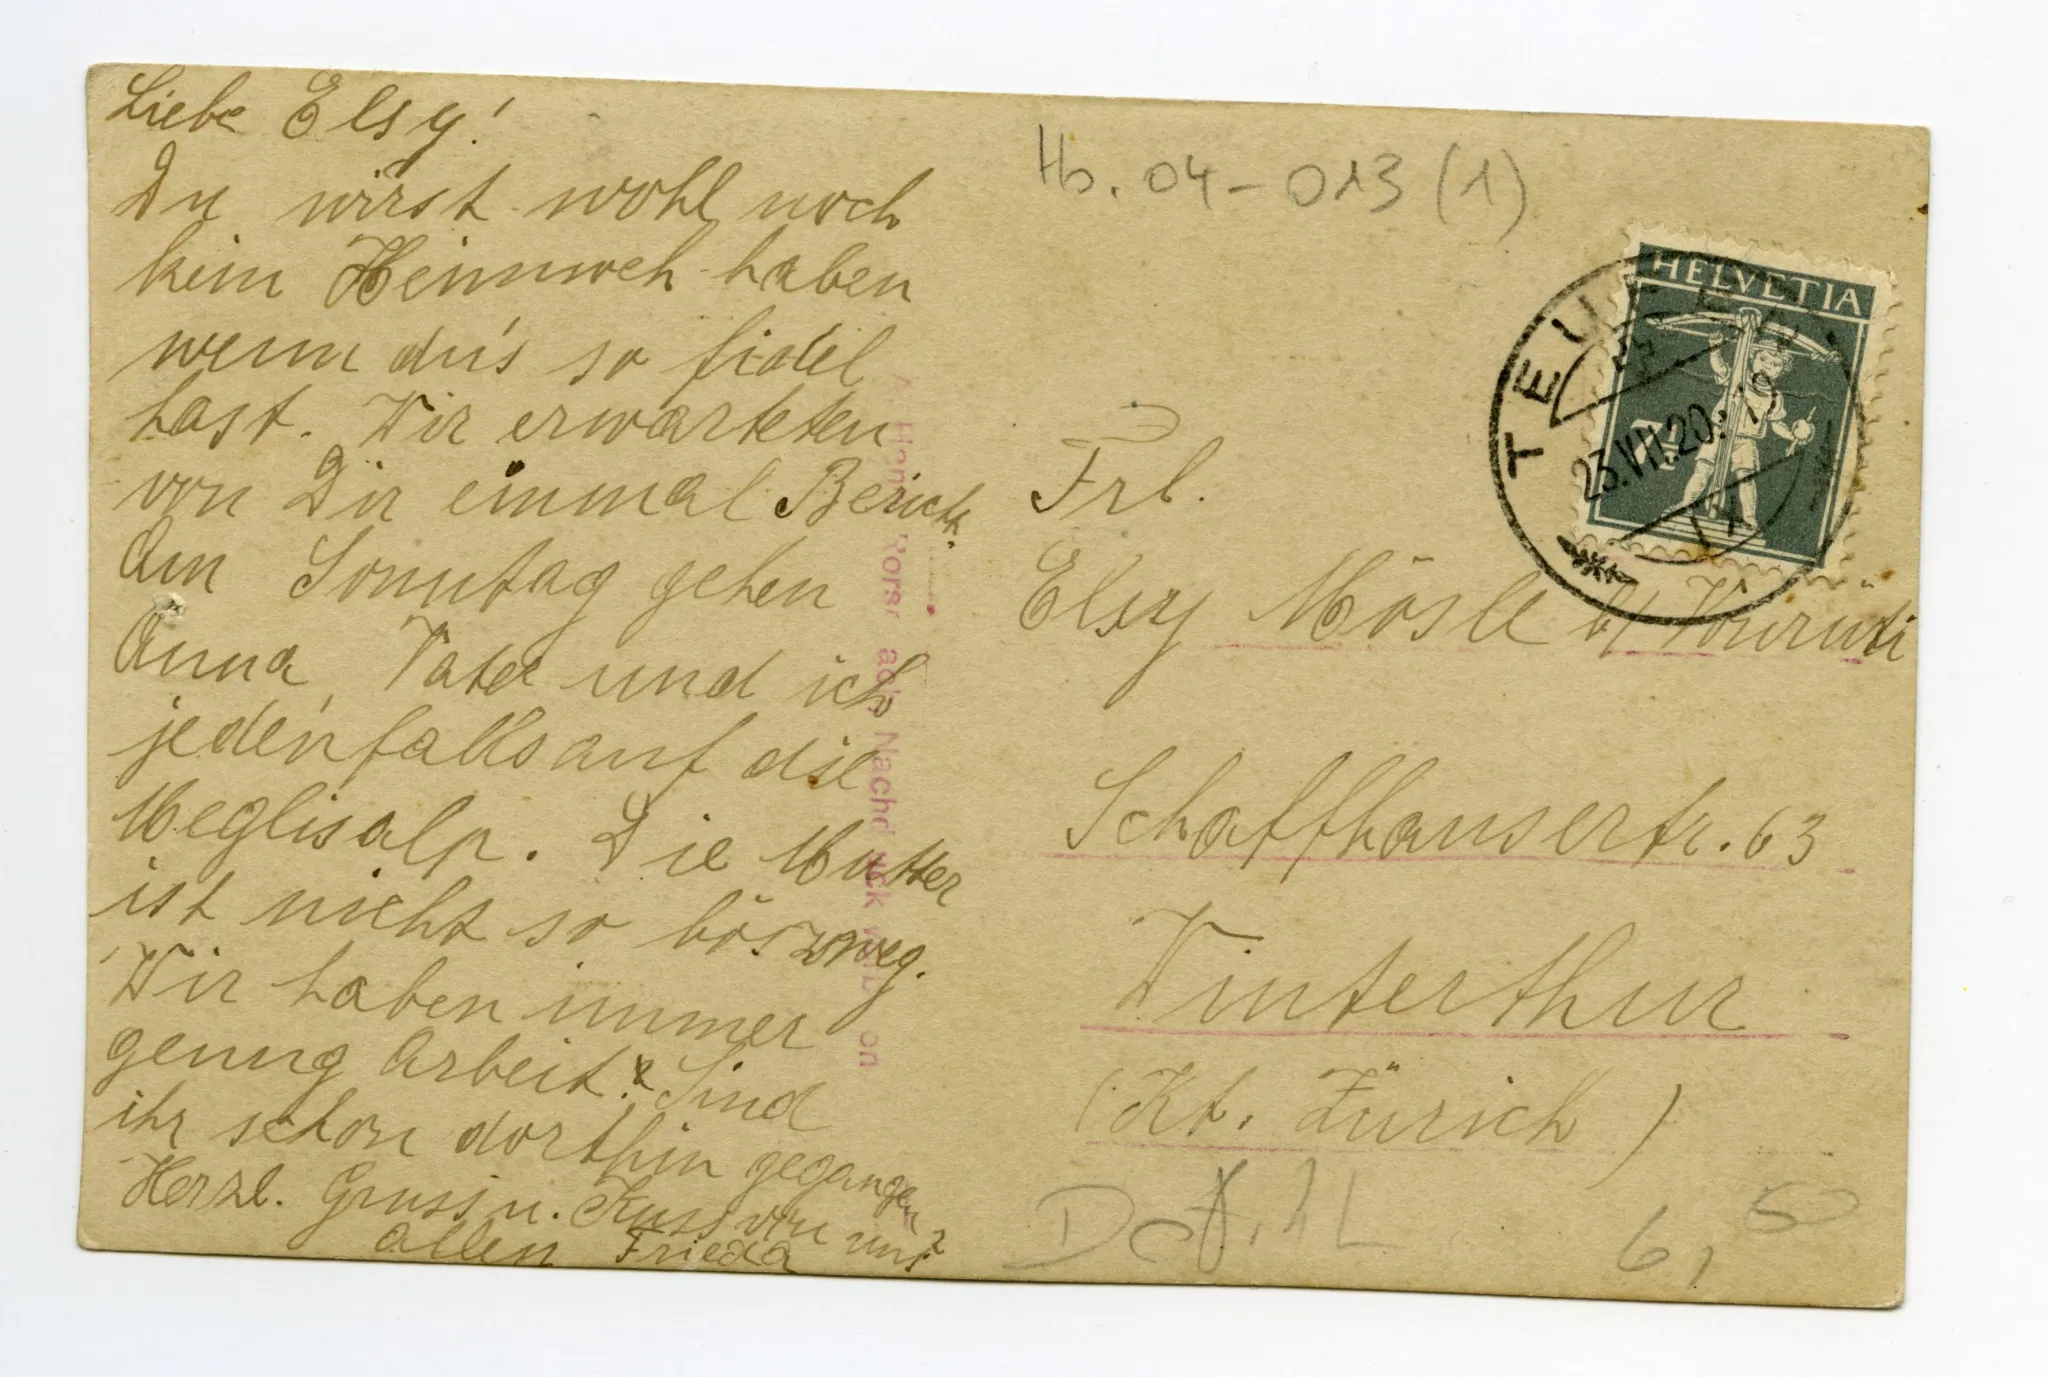 Liebe Elsy!
Du wirst wohl noch
kein Heimweh haben
wenn du's so fidel
hast. Wir erwarteten
von Dir einmal Bericht.
Am Sonntag gehen
Anna, Vater und ich
jedenfalls auf die
Meglisalp. Die Mutter
ist nicht so bös zweg.
Wir haben immer
genug Arbeit. Sind
ihr schon dorthin gegangen?
Herzl. Gruss u. Kuss von uns
allen Frieda
Hb. 04-013 (1)
HELVETIA
TEUFEN
23.VII.20
Frl.
Elsy Mösle b/
Schaffhauserstr. 63
Winterthur
(Kt. Zürich)
6,50